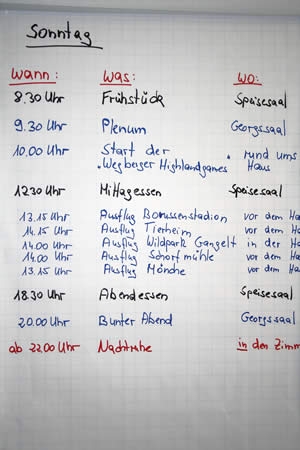 Sonntag
wann: was: wo:
8.30 Uhr Frühstück Speisesaal
9.30 Uhr Plenum Georgssaal
10.00 Uhr Start der • rund ums
• Wegberger Highlandgames Haus
12.30 Uhr Mittagessen Speisesaal
13.15 Uhr Ausflug Borussenstadion vor dem Ha
14.15 Uhr Ausflug Tierheim vor dem Ha
14.00 Uhr Ausflug Wildpark Gangelt in der Ha
14.00 Uhr Ausflug Schrofmühle vor dem Ha
13.15 Uhr Ausflug Mönche vor dem Ha
18.30 Uhr Abendessen Speisesaal
20.00 Uhr Bunter Abend Georgssaal
ab 22.00 Uhr Nachtruhe in den Zimm